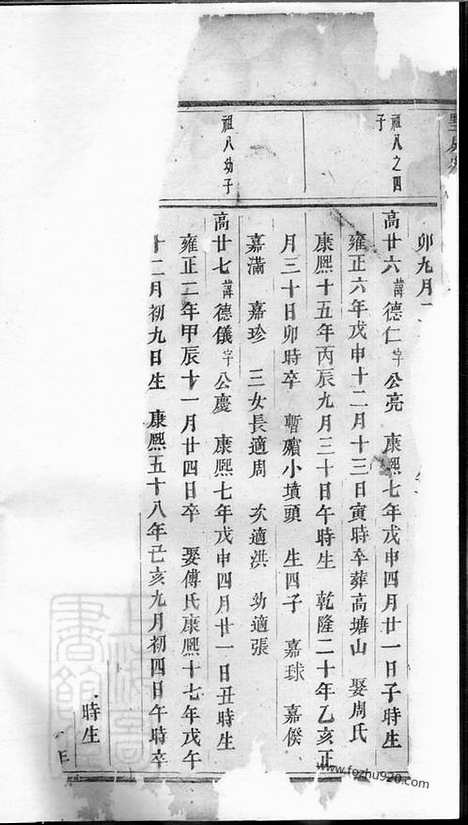 卯九月
祖八之四子
高廿六諱德仁字公亮 康熙七年戊申四月廿一日子時生
雍正六年戊申十二月十三日寅時卒葬高塘山 娶周氏
康熙十五年丙辰九月三十日午時生 乾隆二十年乙亥正
月三十日卯時卒 暫殯小墳頭 生四子 嘉球 嘉俟
嘉滿 嘉珍 三女長適周 次適洪 幼適張
祖八幼子
高廿七諱德儀字公慶 康熙七年戊申四月廿一日丑時生
雍正二年甲辰十一月廿四日卒 娶傅氏康熙十七年戊午
十二月初九日生 康熙五十八年己亥九月初四日午時卒
時生
www.fozhu920.com